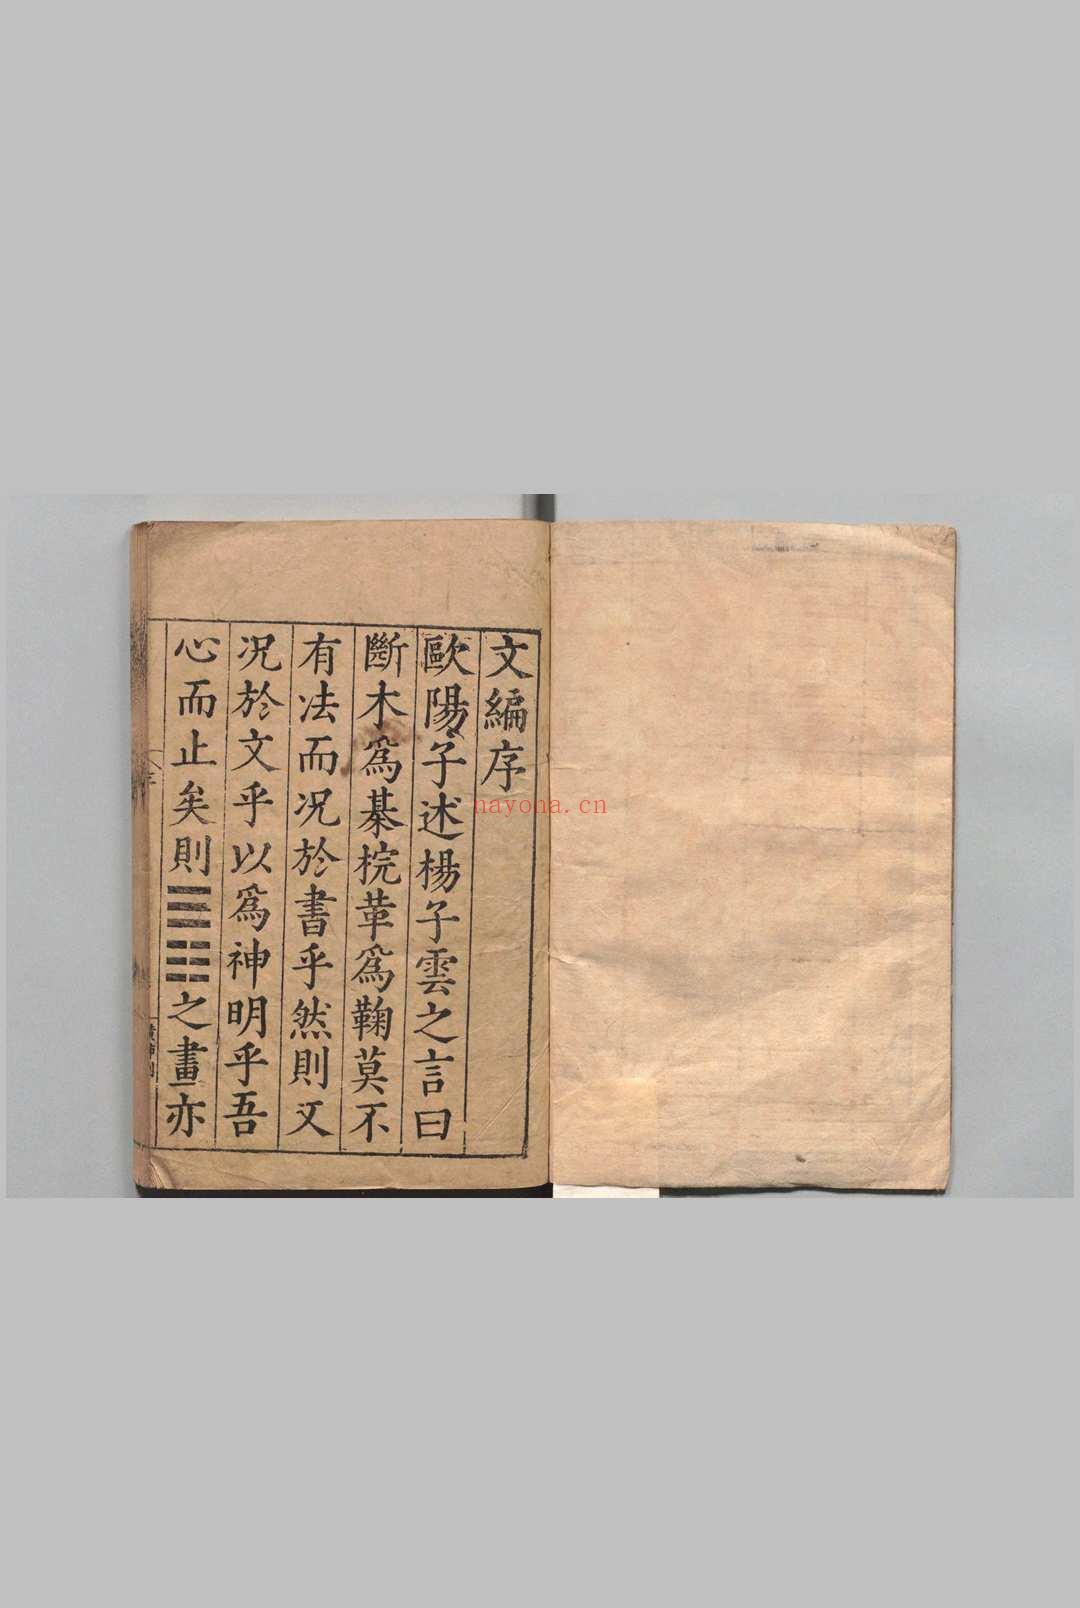 文編序
歐陽子述楊子雲之言曰
斷木爲棊梡革爲鞠莫不
有法而況於書乎然則又
況於文乎以爲神明乎吾
心而止矣則☰☷之畫亦
nayona.cn